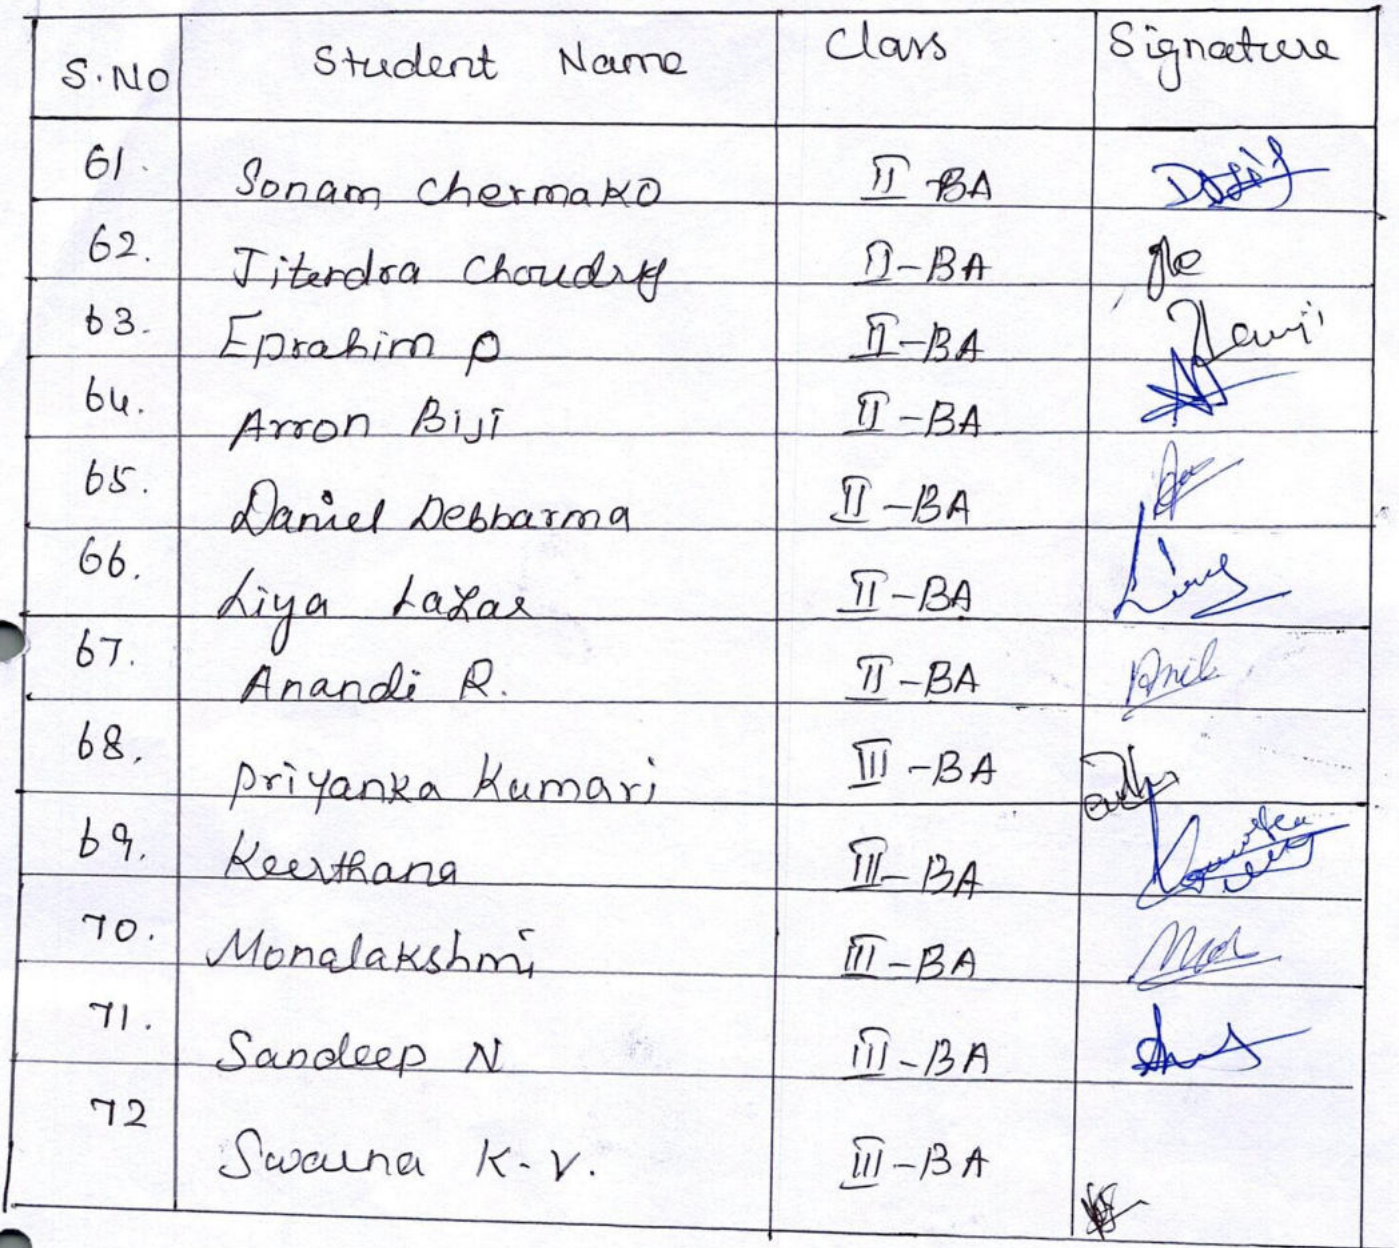 S.No Student Name Class Signature
61. Sonam ChermaKO II-BA
62. Jitendra Choudry II-BA
63. Eprahim P II-BA
64. Arron Biji II-BA
65. Daniel Debbarma II-BA
66. Liya Lazar II-BA
67. Anandi R. II-BA
68. Priyanka Kumari III-BA
69. Keerthana III-BA
70. Monalakshmi III-BA
71. Sandeep N III-BA
72 Swarna K.V. III-BA